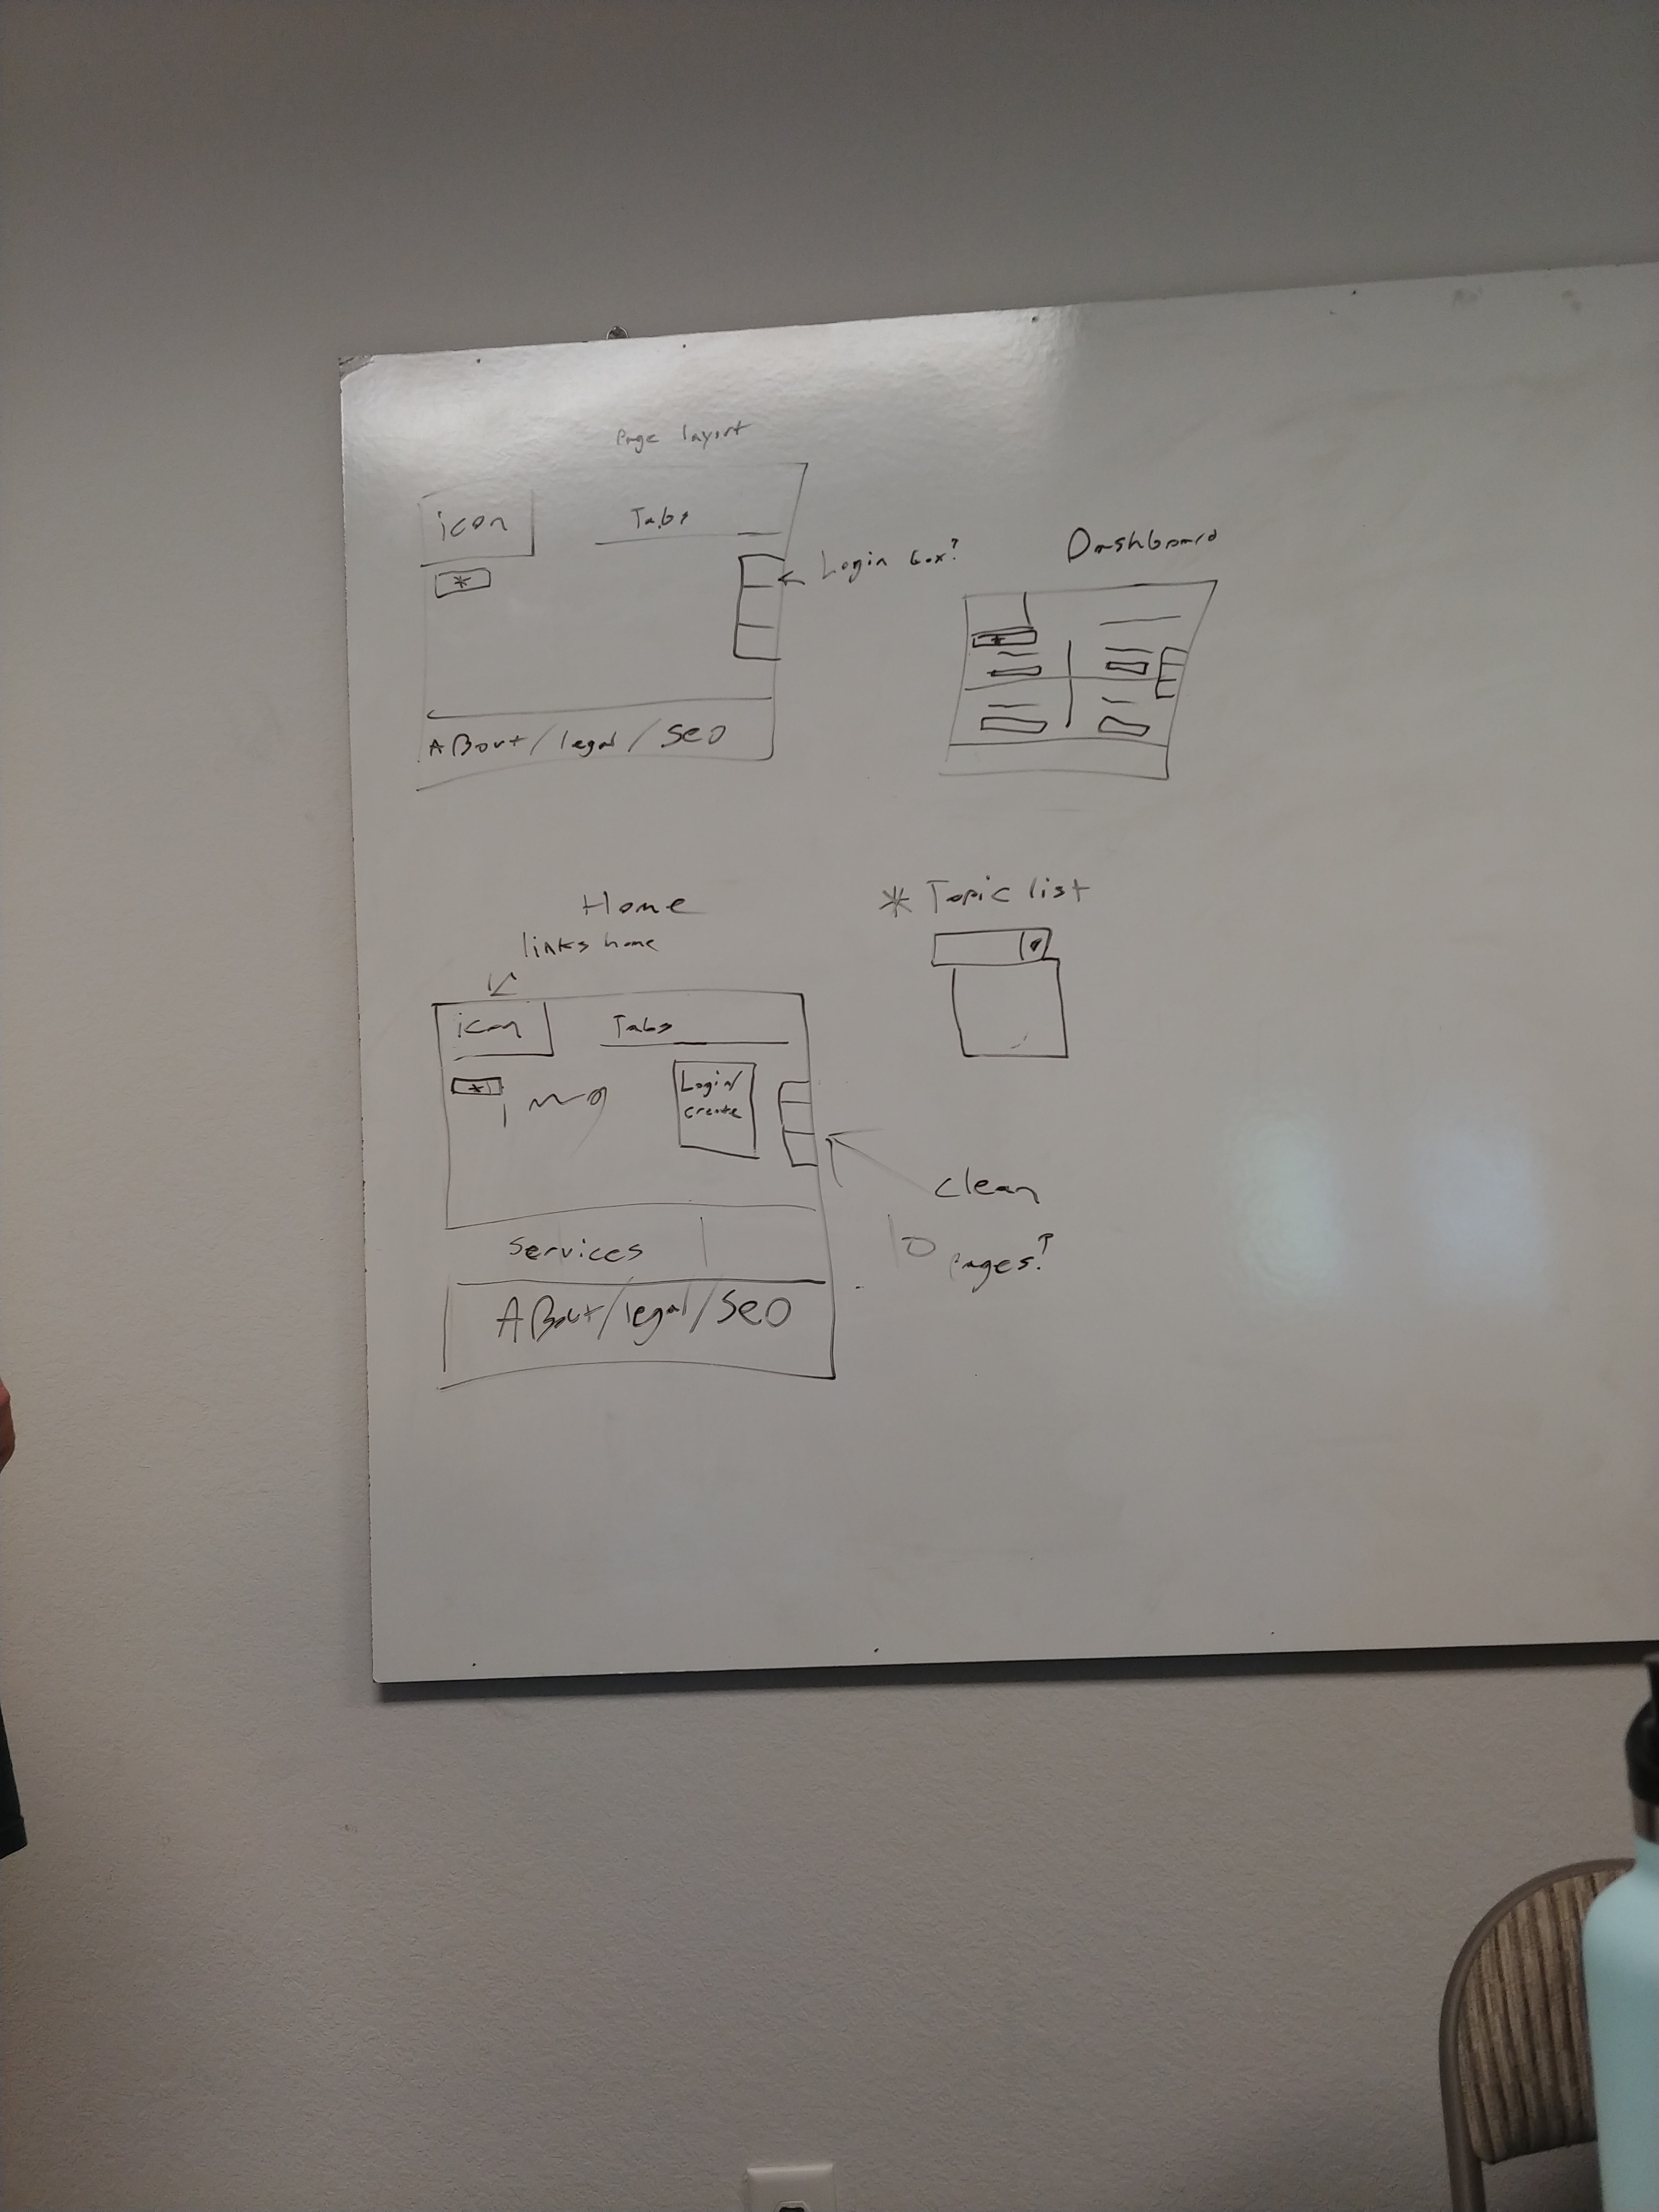 Page layout
icon
Tabs
*
Login box?
About/legal/SEO
Dashboard
*
Home
links home
icon
Tabs
*
img
Login/
create
Services
About/legal/SEO
* Topic list
clean
pages?